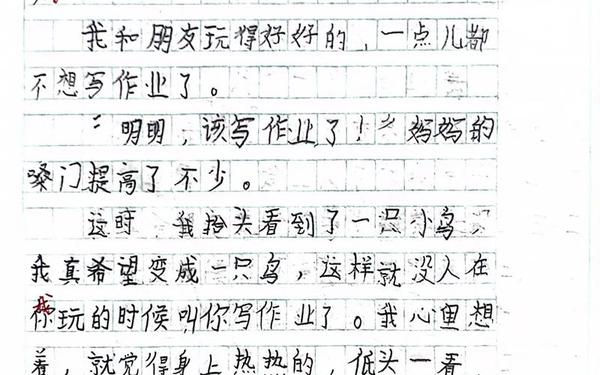 我和朋友玩得好好的，一点儿都
不想写作业了。
“明明，该写作业了！”妈妈的
嗓门提高了不少。
这时，我抬头看到了一只小鸟，
我真希望变成一只鸟，这样就没人在
我
你玩的时候叫你写作业了。我心里想
着，就觉得身上热热的，低头一看，